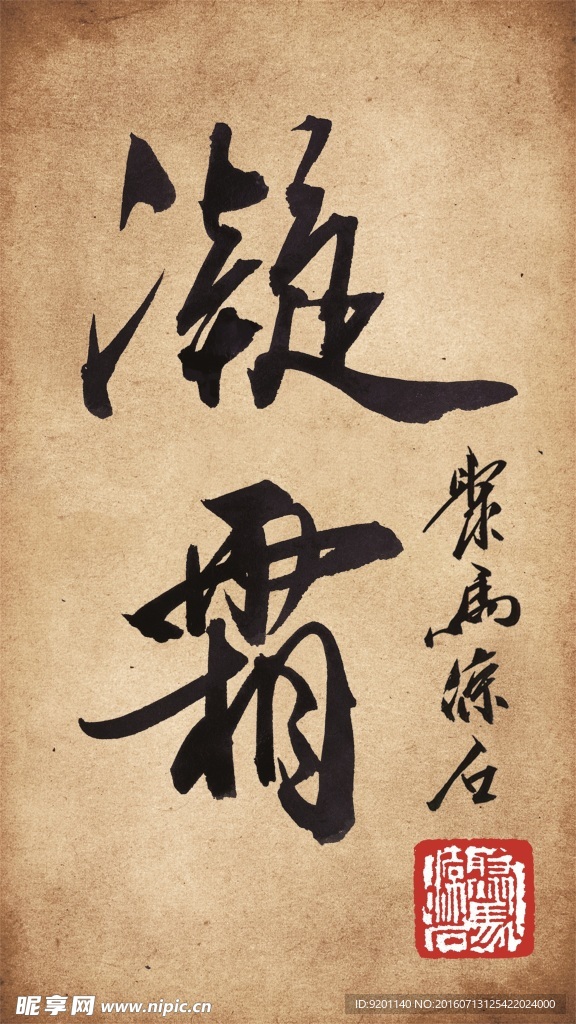 凝霜
聚馬涼石
昵享网 www.nipic.cn
ID:9201140 NO:20160713125422024000